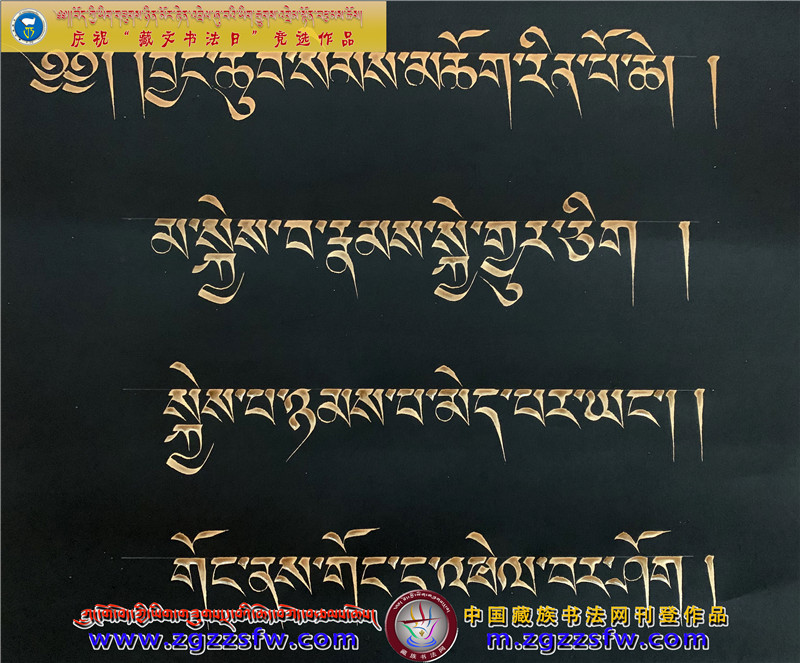 庆祝“藏文书法日”竞选作品
༄༅། །བྱང་ཆུབ་སེམས་མཆོག་རིན་པོ་ཆེ། །
མ་སྐྱེས་པ་རྣམས་སྐྱེ་གྱུར་ཅིག །
སྐྱེས་པ་ཉམས་པ་མེད་པར་ཡང་། །
གོང་ནས་གོང་དུ་འཕེལ་བར་ཤོག །
藏族书法网
中国藏族书法网刊登作品
www.zgzzsfw.com
m.zgzzsfw.com